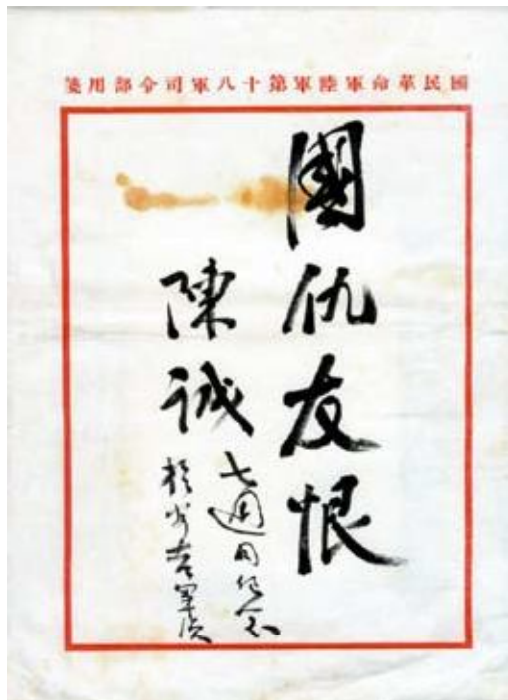 國民革命軍陸軍第十八軍司令部用箋
國仇友恨
陳誠
七週年紀念